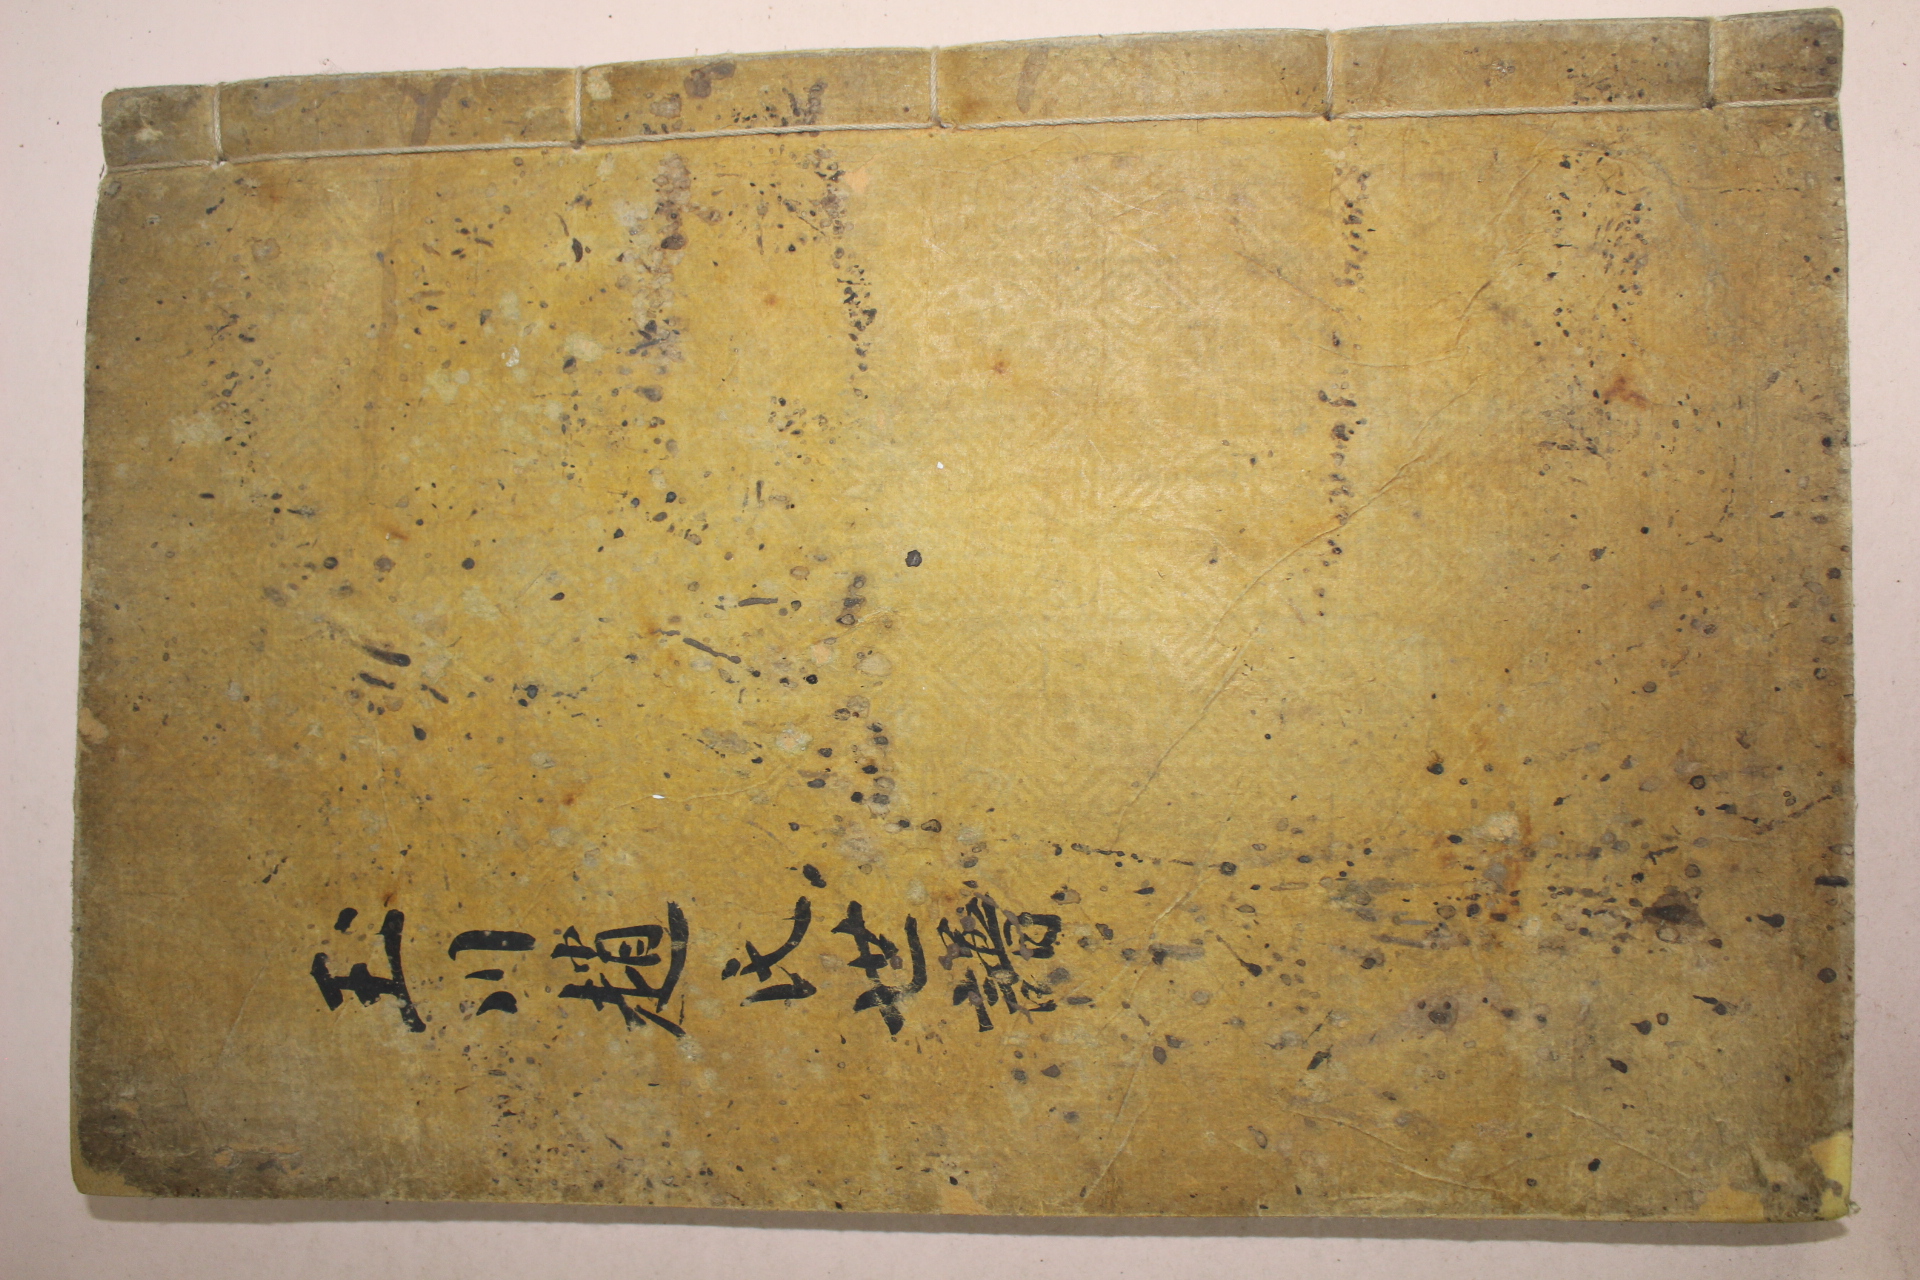 玉川趙氏世譜